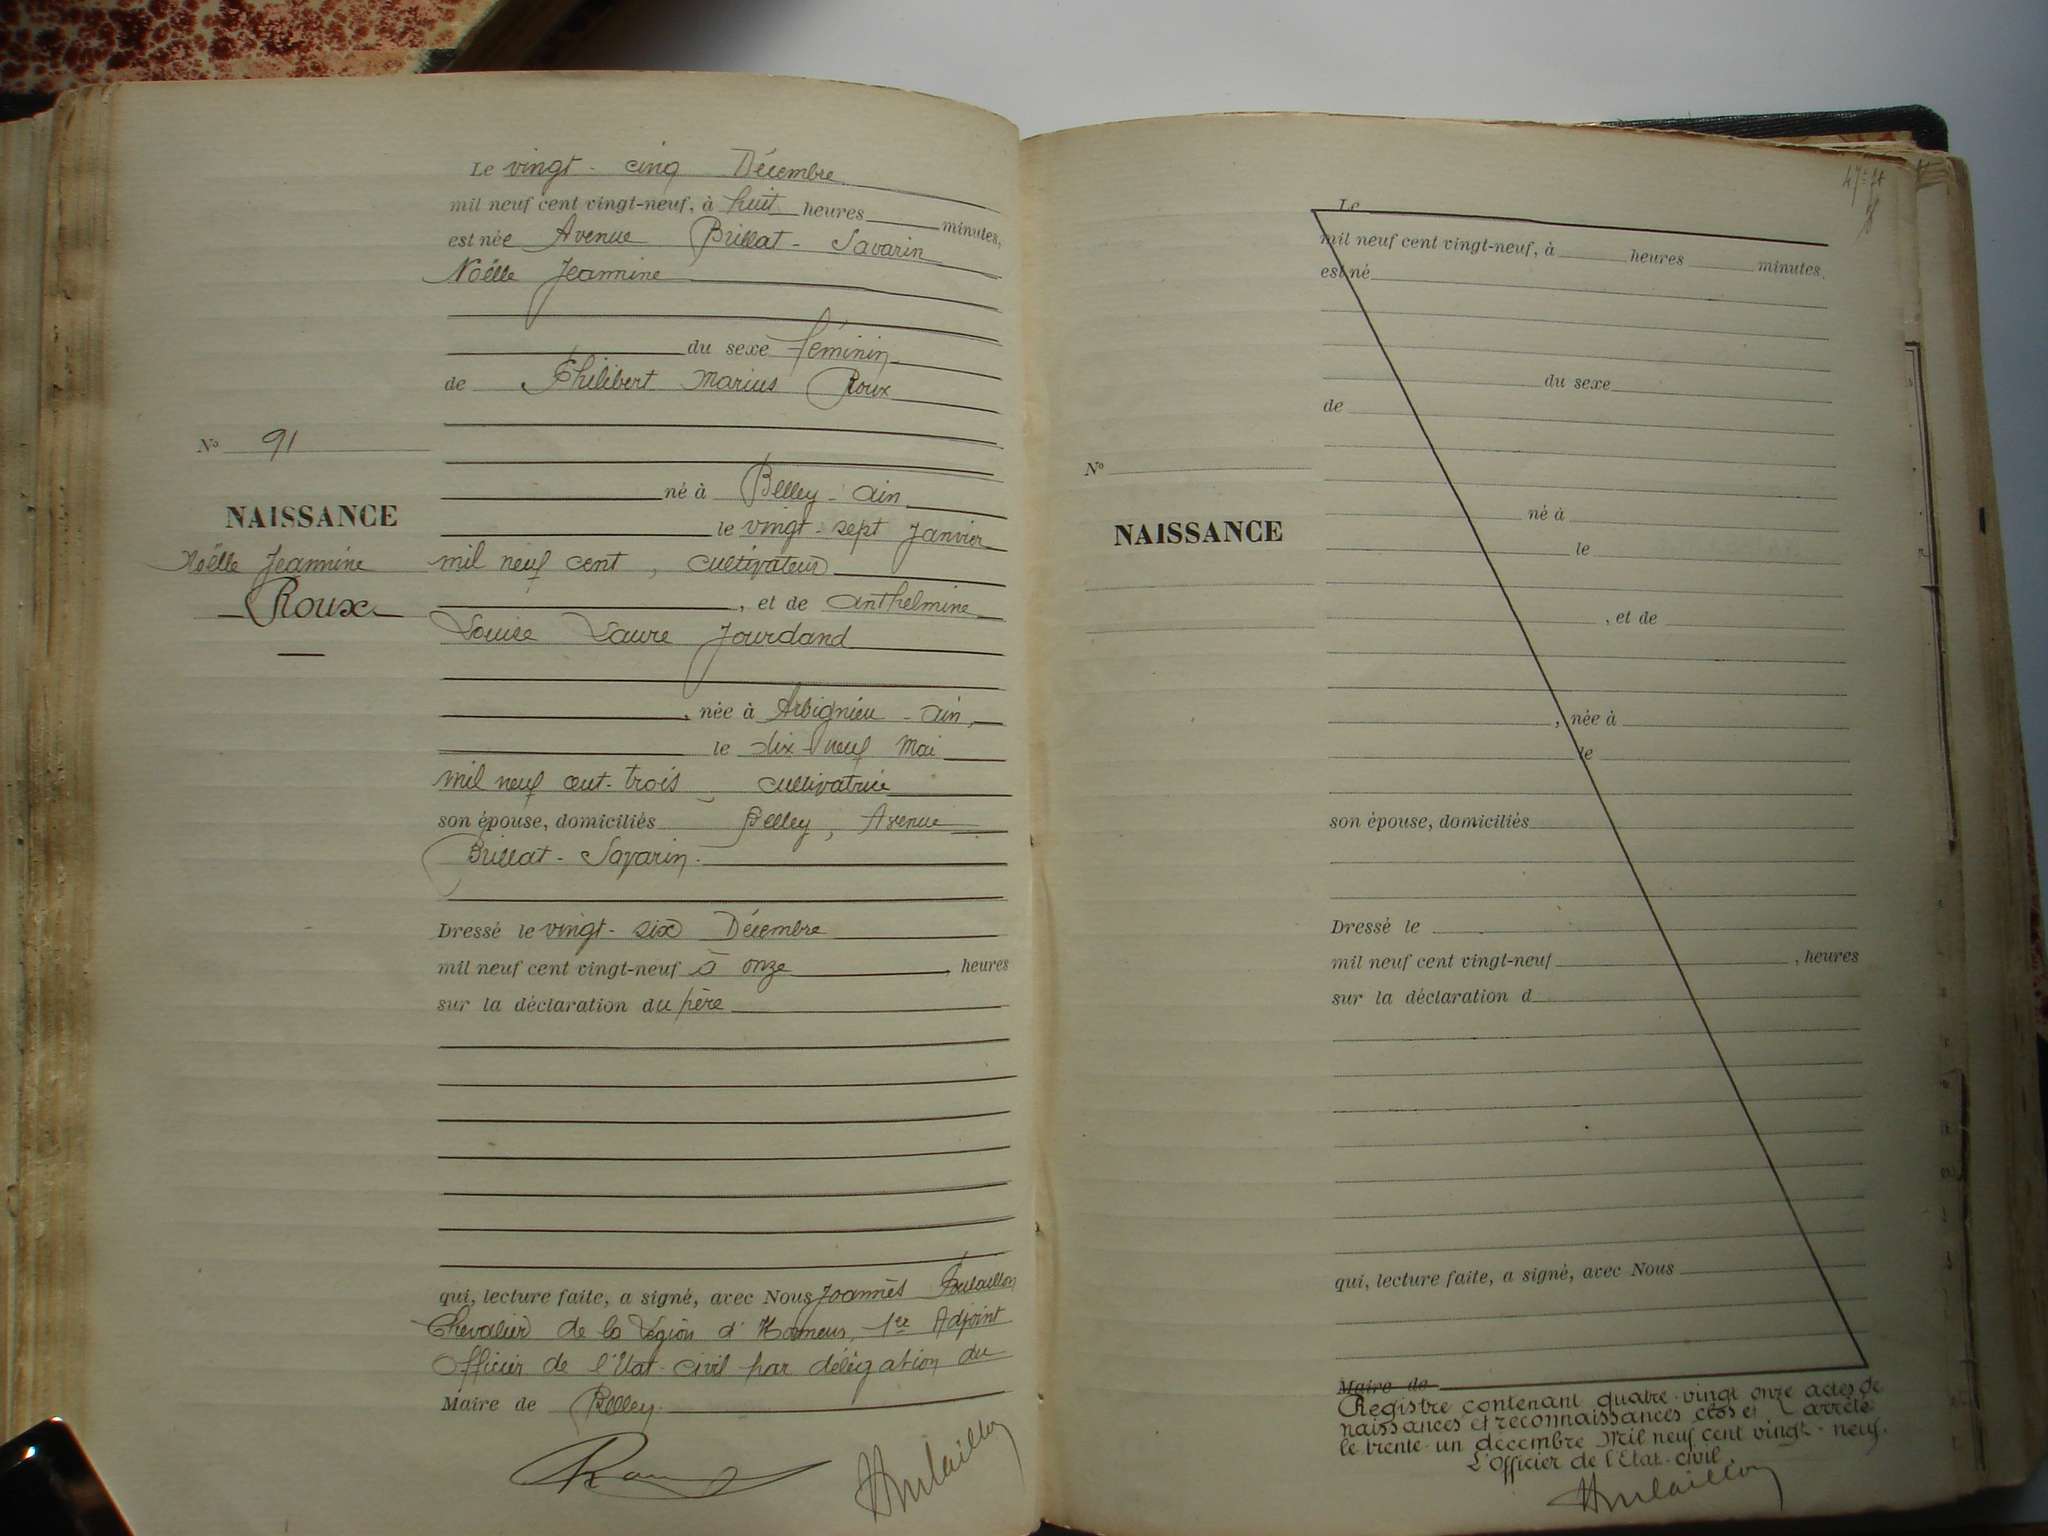 Le vingt-cinq Décembre
mil neuf cent vingt-neuf, à huit heures minutes,
est née Avenue Brillat-Savarin
Noëlle Jeannine
du sexe féminin
de Philibert Marius Roux
né à Belley-Ain
le vingt-sept Janvier
mil neuf cent, cultivateur
, et de Anthelmine
Louise Laure Jourdand
, née à Arbignieu-Ain,
le dix-neuf Mai
mil neuf cent-trois, cultivatrice
son épouse, domiciliés Belley, Avenue
Brillat-Savarin.
Dressé le vingt-six Décembre
mil neuf cent vingt-neuf à onze, heures
sur la déclaration du père
qui, lecture faite, a signé, avec Nous Joannès
Chevalier de la Légion d'Honneur, 1er Adjoint
Officier de l'Etat-civil par délégation du
Maire de Belley.
N° 91
NAISSANCE
Noëlle Jeannine
Roux
Le
mil neuf cent vingt-neuf, à heures minutes.
est né
du sexe
de
né à
le
, et de
, née à
le
son épouse, domiciliés
Dressé le
mil neuf cent vingt-neuf , heures
sur la déclaration d
qui, lecture faite, a signé, avec Nous
Maire de
N°
NAISSANCE
Registre contenant quatre-vingt onze actes de
naissances et reconnaissances clos et arrêté
le trente-un décembre Mil neuf cent vingt-neuf.
L'Officier de l'Etat-civil,